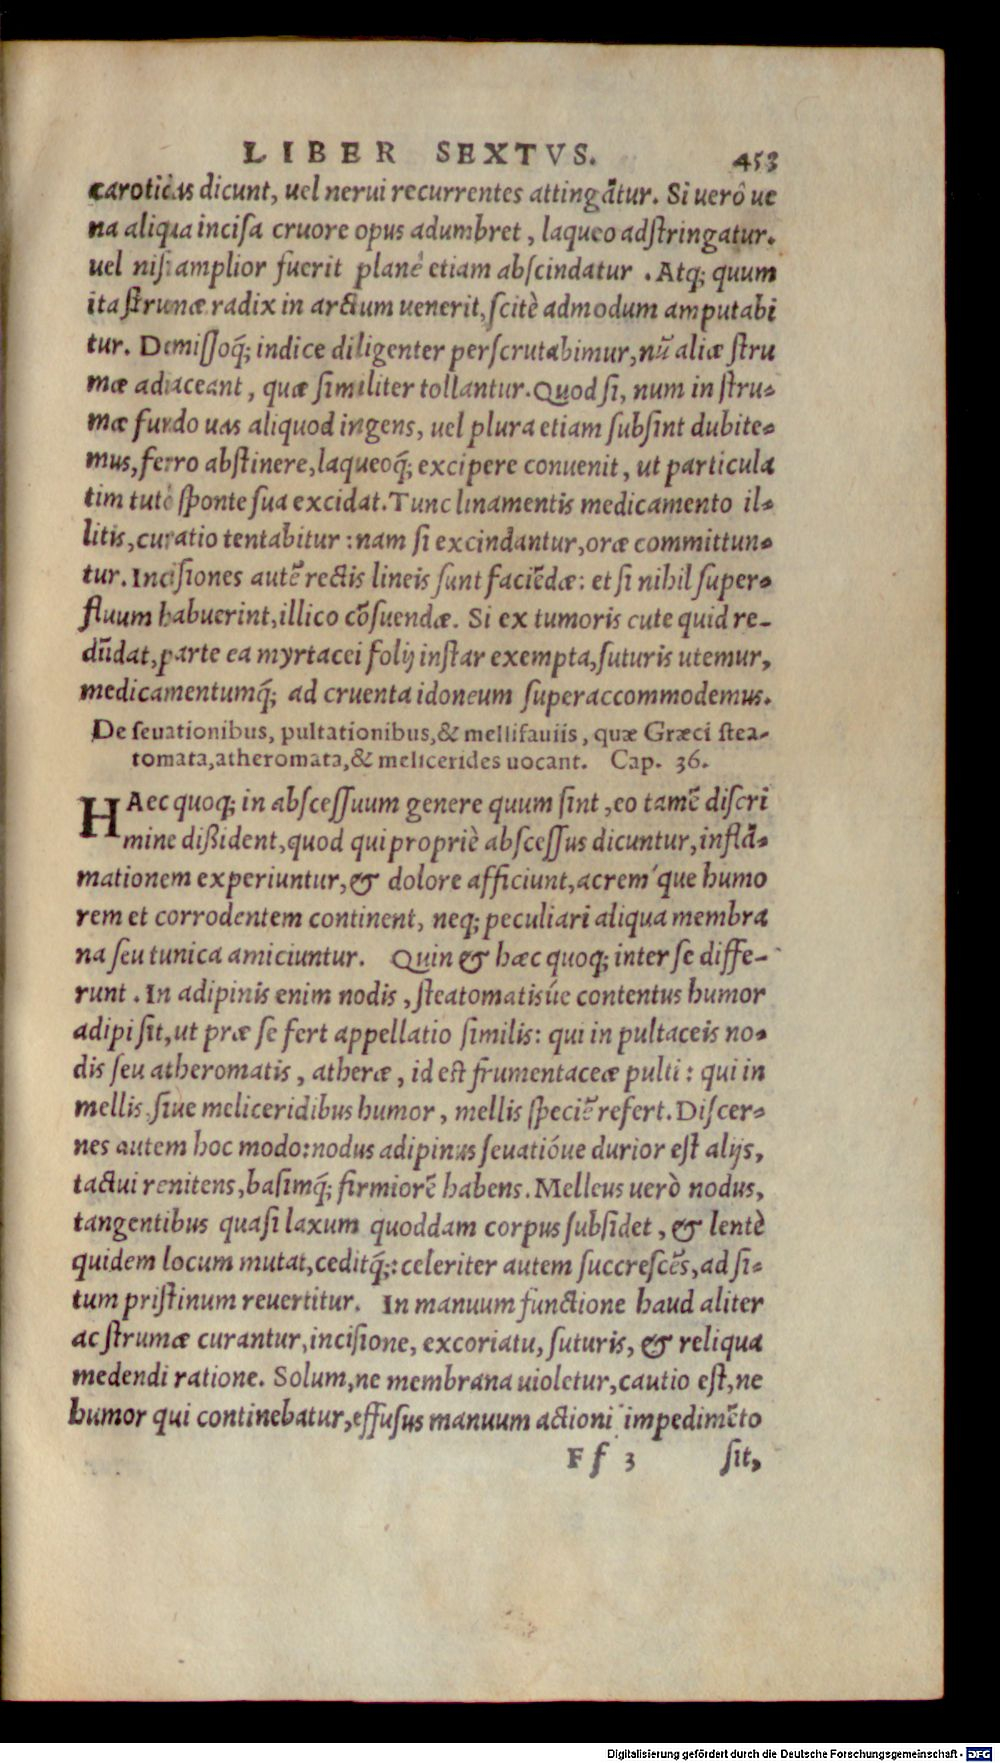 LIBER SEXTVS. 453
caroticas dicunt, uel nerui recurrentes attingãtur. Si uerô ue
na aliqua incisa cruore opus adumbret, laqueo adstringatur.
uel nisi amplior fuerit planè etiam abscindatur. Atq; quum
ita strumæ radix in arctum uenerit, scitè admodum amputabi
tur. Demissoq́; indice diligenter perscrutabimur, nũ aliæ stru
mæ adiaceant, quæ similiter tollantur. Quod si, num in stru-
mæ fundo uas aliquod ingens, uel plura etiam subsint dubite-
mus, ferro abstinere, laqueoq́; excipere conuenit, ut particula
tim tutò sponte sua excidat. Tunc linamentis medicamento il-
litis, curatio tentabitur: nam si excindantur, oræ committun-
tur. Incisiones autẽ rectis lineis sunt faciẽdæ: et si nihil super-
fluum habuerint, illico cõsuendæ. Si ex tumoris cute quid re-
dũdat, parte ea myrtacei folij instar exempta, suturis utemur,
medicamentumq́; ad cruenta idoneum superaccommodemus.
De seuationibus, pultationibus, & mellifauiis, quæ Græci stea-
tomata, atheromata, & melicerides uocant. Cap. 36.
HAec quoq; in abscessuum genere quum sint, eo tamẽ discri
mine dißident, quod qui propriè abscessus dicuntur, inflã-
mationem experiuntur, & dolore afficiunt, acrem'que humo
rem et corrodentem continent, neq; peculiari aliqua membra
na seu tunica amiciuntur. Quin & hæc quoq; inter se diffe-
runt. In adipinis enim nodis, steatomatisúe contentus humor
adipi sit, ut præ se fert appellatio similis: qui in pultaceis no-
dis seu atheromatis, atheræ, id est frumentaceæ pulti: qui in
mellis siue meliceridibus humor, mellis speciẽ refert. Discer-
nes autem hoc modo: nodus adipinus seuatióue durior est alijs,
tactui renitens, basimq́; firmiorẽ habens. Melleus uerò nodus,
tangentibus quasi laxum quoddam corpus subsidet, & lentè
quidem locum mutat, ceditq́;: celeriter autem succrescẽs, ad si-
tum pristinum reuertitur. In manuum functione haud aliter
ac strumæ curantur, incisione, excoriatu, suturis, & reliqua
medendi ratione. Solum, ne membrana uioletur, cautio est, ne
humor qui continebatur, effusus manuum actioni impedimẽto
Ff 3 sit,
Digitalisierung gefördert durch die Deutsche Forschungsgemeinschaft - DFG